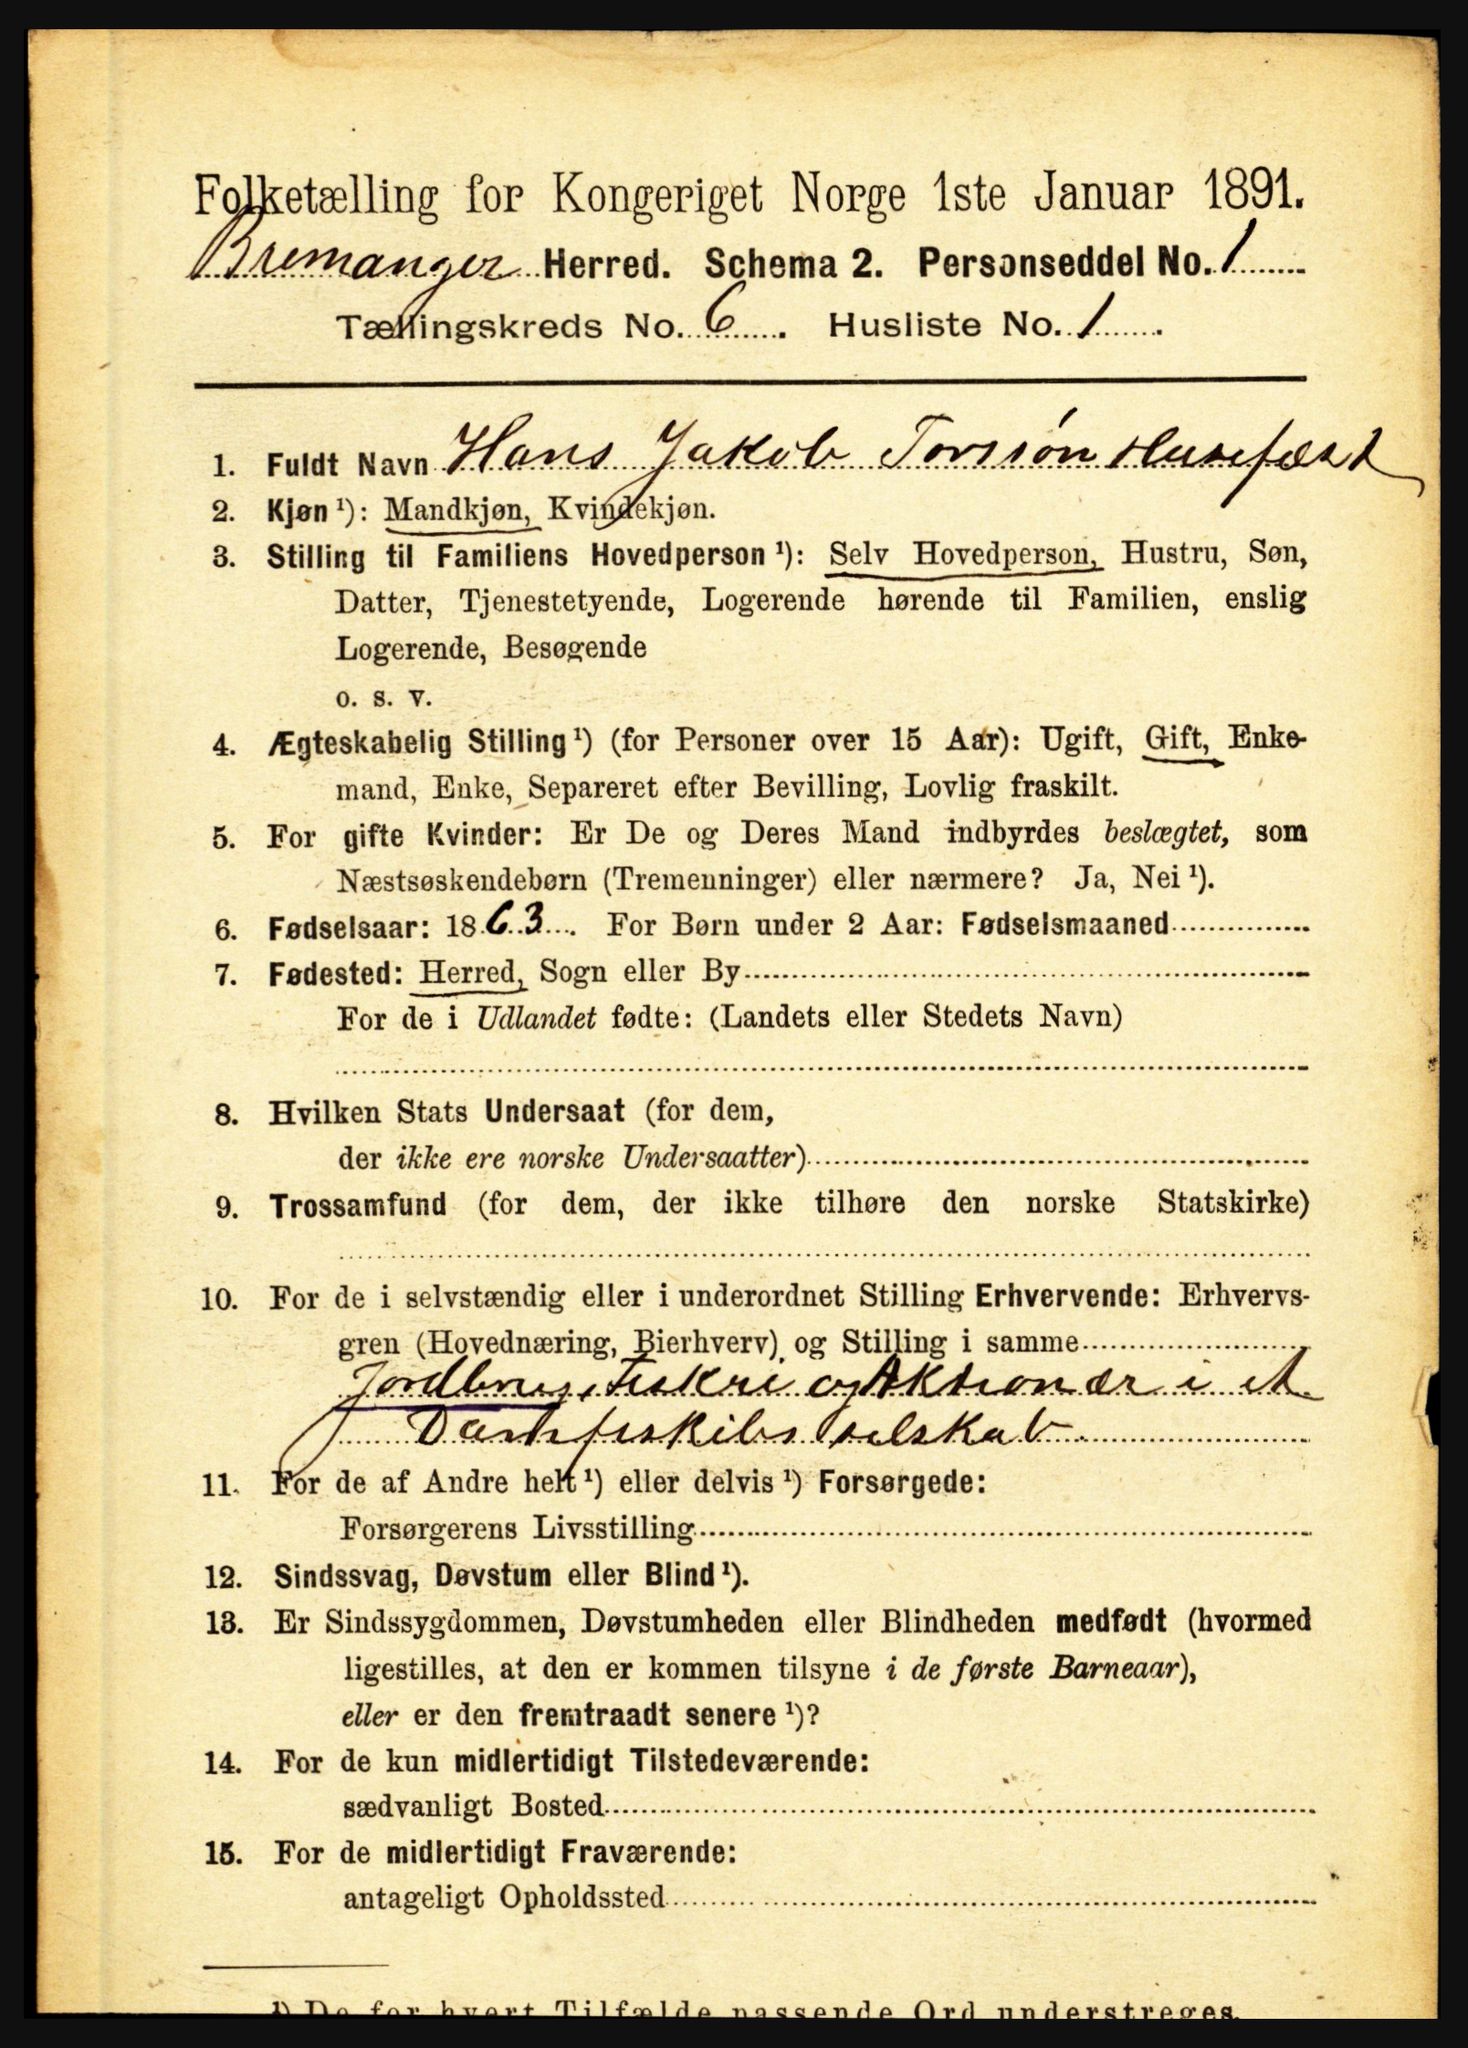 Folketælling for Kongeriget Norge 1ste Januar 1891.
Bremanger Herred. Schema 2. Personseddel No. 1
Tællingskreds No. 6. Husliste No. 1.
1. Fuldt Navn Hans Jakob Torssøn Husefæst
2. Kjøn ¹): Mandkjøn, Kvindekjøn.
3. Stilling til Familiens Hovedperson ¹): Selv Hovedperson, Hustru, Søn,
Datter, Tjenestetyende, Logerende hørende til Familien, enslig
Logerende, Besøgende
o. s. v.
4. Ægteskabelig Stilling ¹) (for Personer over 15 Aar): Ugift, Gift, Enke-
mand, Enke, Separeret efter Bevilling, Lovlig fraskilt.
5. For gifte Kvinder: Er De og Deres Mand indbyrdes beslægtet, som
Næstsøskendebørn (Tremenninger) eller nærmere? Ja, Nei ¹).
6. Fødselsaar: 1863. For Børn under 2 Aar: Fødselsmaaned
7. Fødested: Herred, Sogn eller By
For de i Udlandet fødte: (Landets eller Stedets Navn)
8. Hvilken Stats Undersaat (for dem,
der ikke ere norske Undersaatter)
9. Trossamfund (for dem, der ikke tilhøre den norske Statskirke)
10. For de i selvstændig eller i underordnet Stilling Erhvervende: Erhvervs-
gren (Hovednæring, Bierhverv) og Stilling i samme
Jordbrug, Fiskri og Aktionær i et
Damfskibs selskab
11. For de af Andre helt ¹) eller delvis ¹) Forsørgede:
Forsørgerens Livsstilling
12. Sindssvag, Døvstum eller Blind ¹).
13. Er Sindssygdommen, Døvstumheden eller Blindheden medfødt (hvormed
ligestilles, at den er kommen tilsyne i de første Barneaar),
eller er den fremtraadt senere ¹)?
14. For de kun midlertidigt Tilstedeværende:
sædvanligt Bosted
15. For de midlertidigt Fraværende:
antageligt Opholdssted
¹) De for hvert Tilfælde passende Ord understreges.